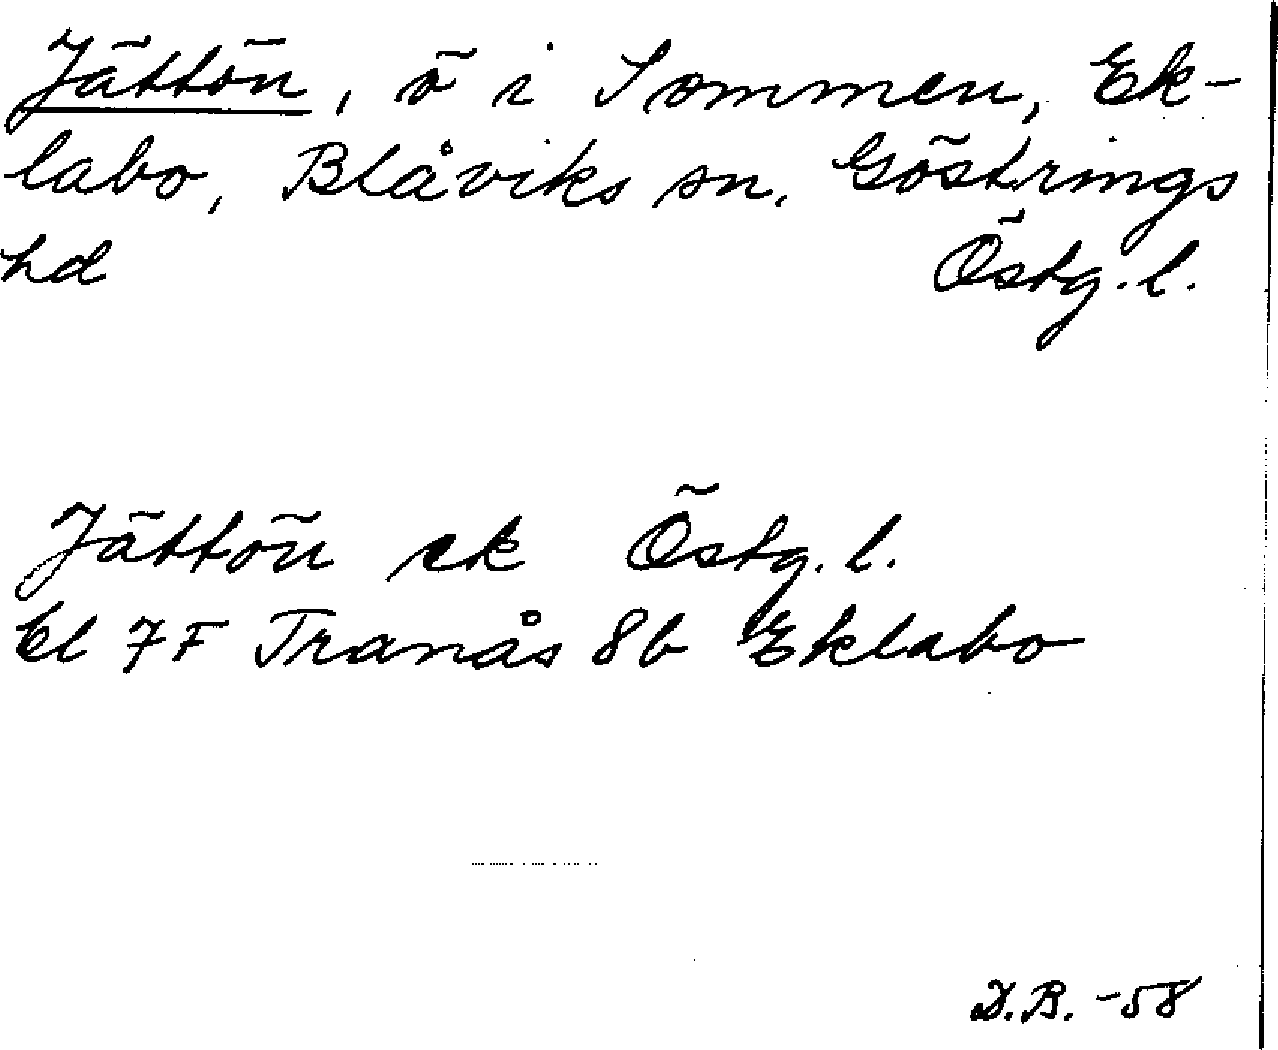 Jättön, ö i Sommen, Ek-
labo, Blåviks sn, Göstrings
hd Östg. l.
Jättön ek Östg. l.
El 7F Tranås 8b Eklabo
D.B. -58